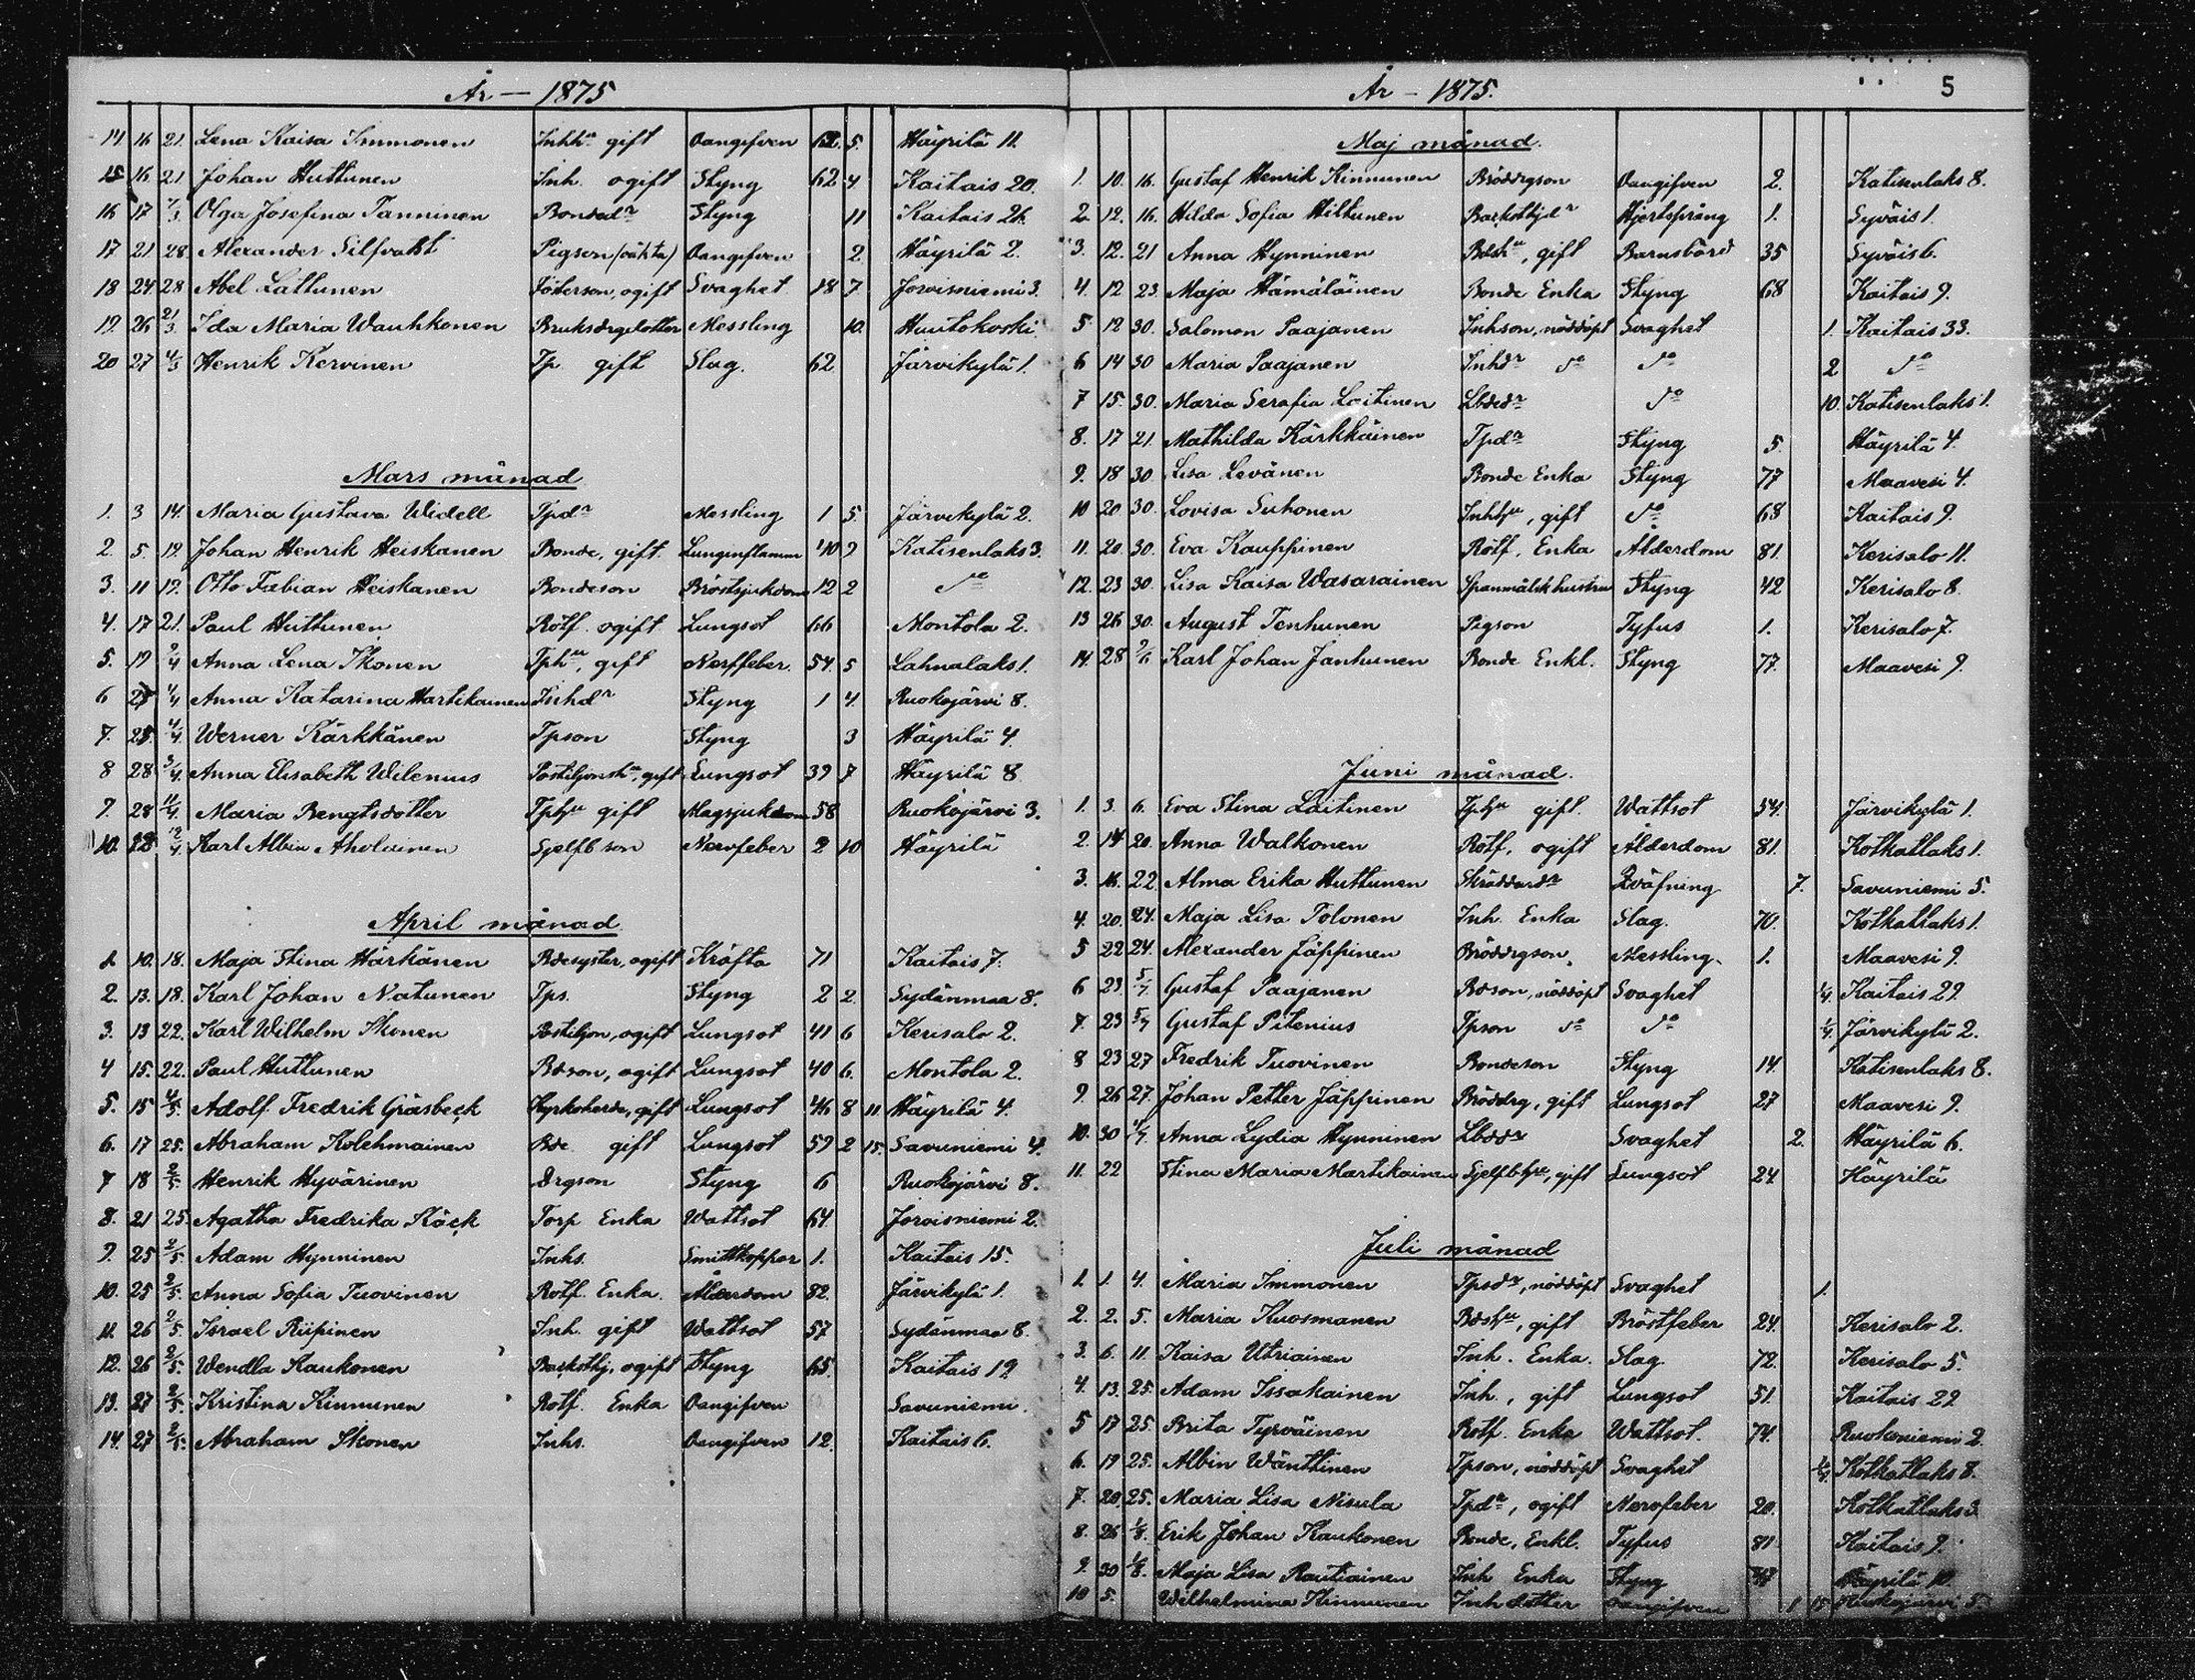 År — 1875
14 16 21. Lena Kaisa Immonen Inhhu gift Oangifven 62. 5. Häyrilä 11.
15 16. 21. Johan Huttunen Inh. ogift Styng 62 4. Kaitais 20.
16 17 7/3 Olga Josefina Tanninen Bondedr Styng 11 Kaitais 26.
17 21 28. Alexander Silfvast Pigson (oäkta) Oangifven 2. Häyrilä 2.
18 24. 28 Abel Lattunen ogift Svaghet 18 7. Jorvisniemi 3.
19. 26 21/3 Ida Maria Wauhkonen Messling 10. Huutokoski
20 27 4/3 Henrik Kervinen Tp. gift Slag. 62 Järvikylä 1.
Mars månad
1. 3 14. Maria Gustava Widell Tpdr Messling 1 5. Järvikylä 2.
2. 5. 19. Johan Henrik Heiskanen Bonde, gift. Lunginflamm 40 9 Katisenlaks 3.
3. 11 19. Otto Fabian Heiskanen Bondeson Bröstsjukdom 12 2 do
4. 17 21. Paul Huttunen Rotf. ogift Lungsot 66 Montola 2.
5. 19 9/4 Anna Lena Ikonen Tphu, gift Nerffeber. 54. 5 Lahnalaks 1.
6 4/4 Anna Katarina Hartikainen Inhdr Styng 1 4. Ruokojärvi 8.
7. 25. 4/4. Werner Kärkkänen Tpson Styng 3 Häyrilä 4.
8 28 3/4. Anna Elisabeth Wilenius Postiljonshu, gift Lungsot 39 7 Häyrilä 8.
9. 28 11/4. Maria Bengtsdotter Tphu gift Magsjukdom 58 Ruokojärvi 3.
10. 28 Karl Albin Aholainen Sjelfb son Nervfeber 2 10 Häyrilä
April månad
1. 10. 18. Maja Stina Härkänen Bdesyster, ogift Kräfta 71 Kaitais 7.
2. 13. 18. Karl Johan Natunen Tps. Styng 2 2. Sydänmaa 8.
3. 13 22. Karl Wilhelm Ikonen Postiljon, ogift Lungsot 41 6 Kerisalo 2.
4 15. 22. Paul Huttunen Bdson, ogift Lungsot 40 6. Montola 2.
5. 15 4/5. Adolf Fredrik Gräsbeck Kyrkoherde, gift Lungsot 46 8 11. Häyrilä 4.
6. 17 25. Abraham Kolehmainen Bde gift Lungsot 59 2 15. Savuniemi 4.
7 18 2/5. Henrik Hyvärinen Drgson Styng 6 Ruokojärvi 8.
8. 21 25. Agatha Fredrika Käck Torp Enka Wattsot 64. Jorvisniemi 2.
9. 25 2/5. Adam Hynninen Inhs. Smittkoppor 1. Kaitais 15.
10. 25 2/5. Anna Sofia Tuovinen Rotf. Enka. Ålderdom 82. Järvikylä 1.
11. 26 2/5. Israel Riipinen Inh. gift Wattsot 57 Sydänmaa 8.
12. 26 2/5. Wendla Kaukonen ogift Styng 65. Kaitais 19
13. 27 2/5. Kristina Kinnunen Rotf. Enka Oangifven Savuniemi.
14. 27 2/5. Abraham Ikonen Inhs. Oangifven 12. Kaitais 6.
År - 1875. 5
Maj månad.
1. 10. 16. Gustaf Henrik Kinnunen Bröddrgson Oangifven 2. Katisenlaks 8.
2. 12. 16. Hilda Sofia Hiltunen Hjertsprång 1. Syväis 1.
3. 12. 21 Anna Hynninen Bdshu, gift Barnsbörd 35 Syväis 6.
4. 12 23. Maja Hämäläinen Bonde Enka Styng 68 Kaitais 9.
5. 12 30. Salomon Paajanen Inhson, nöddöpt Svaghet 1. Kaitais 33.
6 14 30 Maria Paajanen Inhdr do do 2 do
7 15. 30. Maria Serafia Laitinen Lbdedr do 10. Katisenlaks 1.
8. 17 21. Mathilda Kärkkäinen Tpdr Styng 5. Häyrilä 4.
9. 18 30 Lisa Levänen Bonde Enka Styng 77 Maavesi 4.
10 20 30. Lovisa Suhonen Inhhu, gift do 68 Kaitais 9.
11. 20. 30. Eva Kauppinen Rotf. Enka Ålderdom 81. Kerisalo 11.
12. 23 30. Lisa Kaisa Wasarainen Spanmålskhustru Styng 42 Kerisalo 8.
13 26 30. August Tenhunen Pigson Tyfus 1. Kerisalo 7.
14. 28 7/6 Karl Johan Janhunen Bonde Enkl. Styng 77. Maavesi 9.
Juni månad.
1. 3. 6. Eva Stina Laitinen Tphu gift. Wattsot 54. Järvikylä 1.
2. 14 20. Anna Walkonen Rotf, ogift Ålderdom 81. Kotkatlaks 1.
3. 16. 22. Alma Erika Huttunen Skräddardr Qväfning 7. Savuniemi 5.
4. 20. 24. Maja Lisa Tolonen Inh. Enka Slag. 70. Kotkatlaks 1.
5 22 24. Alexander Jäppinen Bröddrgson, Messling. 1. Maavesi 9.
6 23. 5/7. Gustaf Paajanen Bdson, nöddöpt Svaghet 1/4. Kaitais 29.
7. 23 5/7 Gustaf Pitenius Tpson do do 1/4. Järvikylä 2.
8 23 27 Fredrik Tuovinen Bondeson Styng 14. Katisenlaks 8.
9. 26 27. Johan Petter Jäppinen Bröddrg, gift Lungsot 27 Maavesi 9.
10. 30 4/7 Anna Lydia Hynninen Lbddr Svaghet 2. Häyrilä 6.
11. 22 Stina Maria Martikainen Sjelfbhu, gift Lungsot 24. Häyrilä
Juli månad
1. 1. 4. Maria Immonen Tpsdr, nöddöpt Svaghet 1.
2. 2. 5. Maria Kuosmanen Bdshu, gift Bröstfeber 24. Kerisalo 2.
3. 6. 11. Kaisa Utriainen Inh. Enka. Slag. 72. Kerisalo 5.
4. 13. 25. Adam Issakainen Inh., gift Lungsot 51. Kaitais 22
5 17 25. Brita Tyrväinen Rotf. Enka Wattsot. 74. Ruokoniemi 2.
6. 19 25. Albin Wänttinen Tpson, nöddöpt Svaghet Kotkatlaks 8.
7. 20. 25. Maria Lisa Nisula Tpdr, ogift Nervfeber 20. Kotkatlaks 3
8. 26 1/8. Erik Johan Kaukonen Bonde, Enkl. Tyfus 81 Kaitais 9.
9. 30 1/8. Maja Lisa Rautiainen Inh Enka Styng Häyrilä 10.
10 5. Wilhelmina Kinnunen Inh dotter Oangifven 1 15 Ruokojärvi 5.